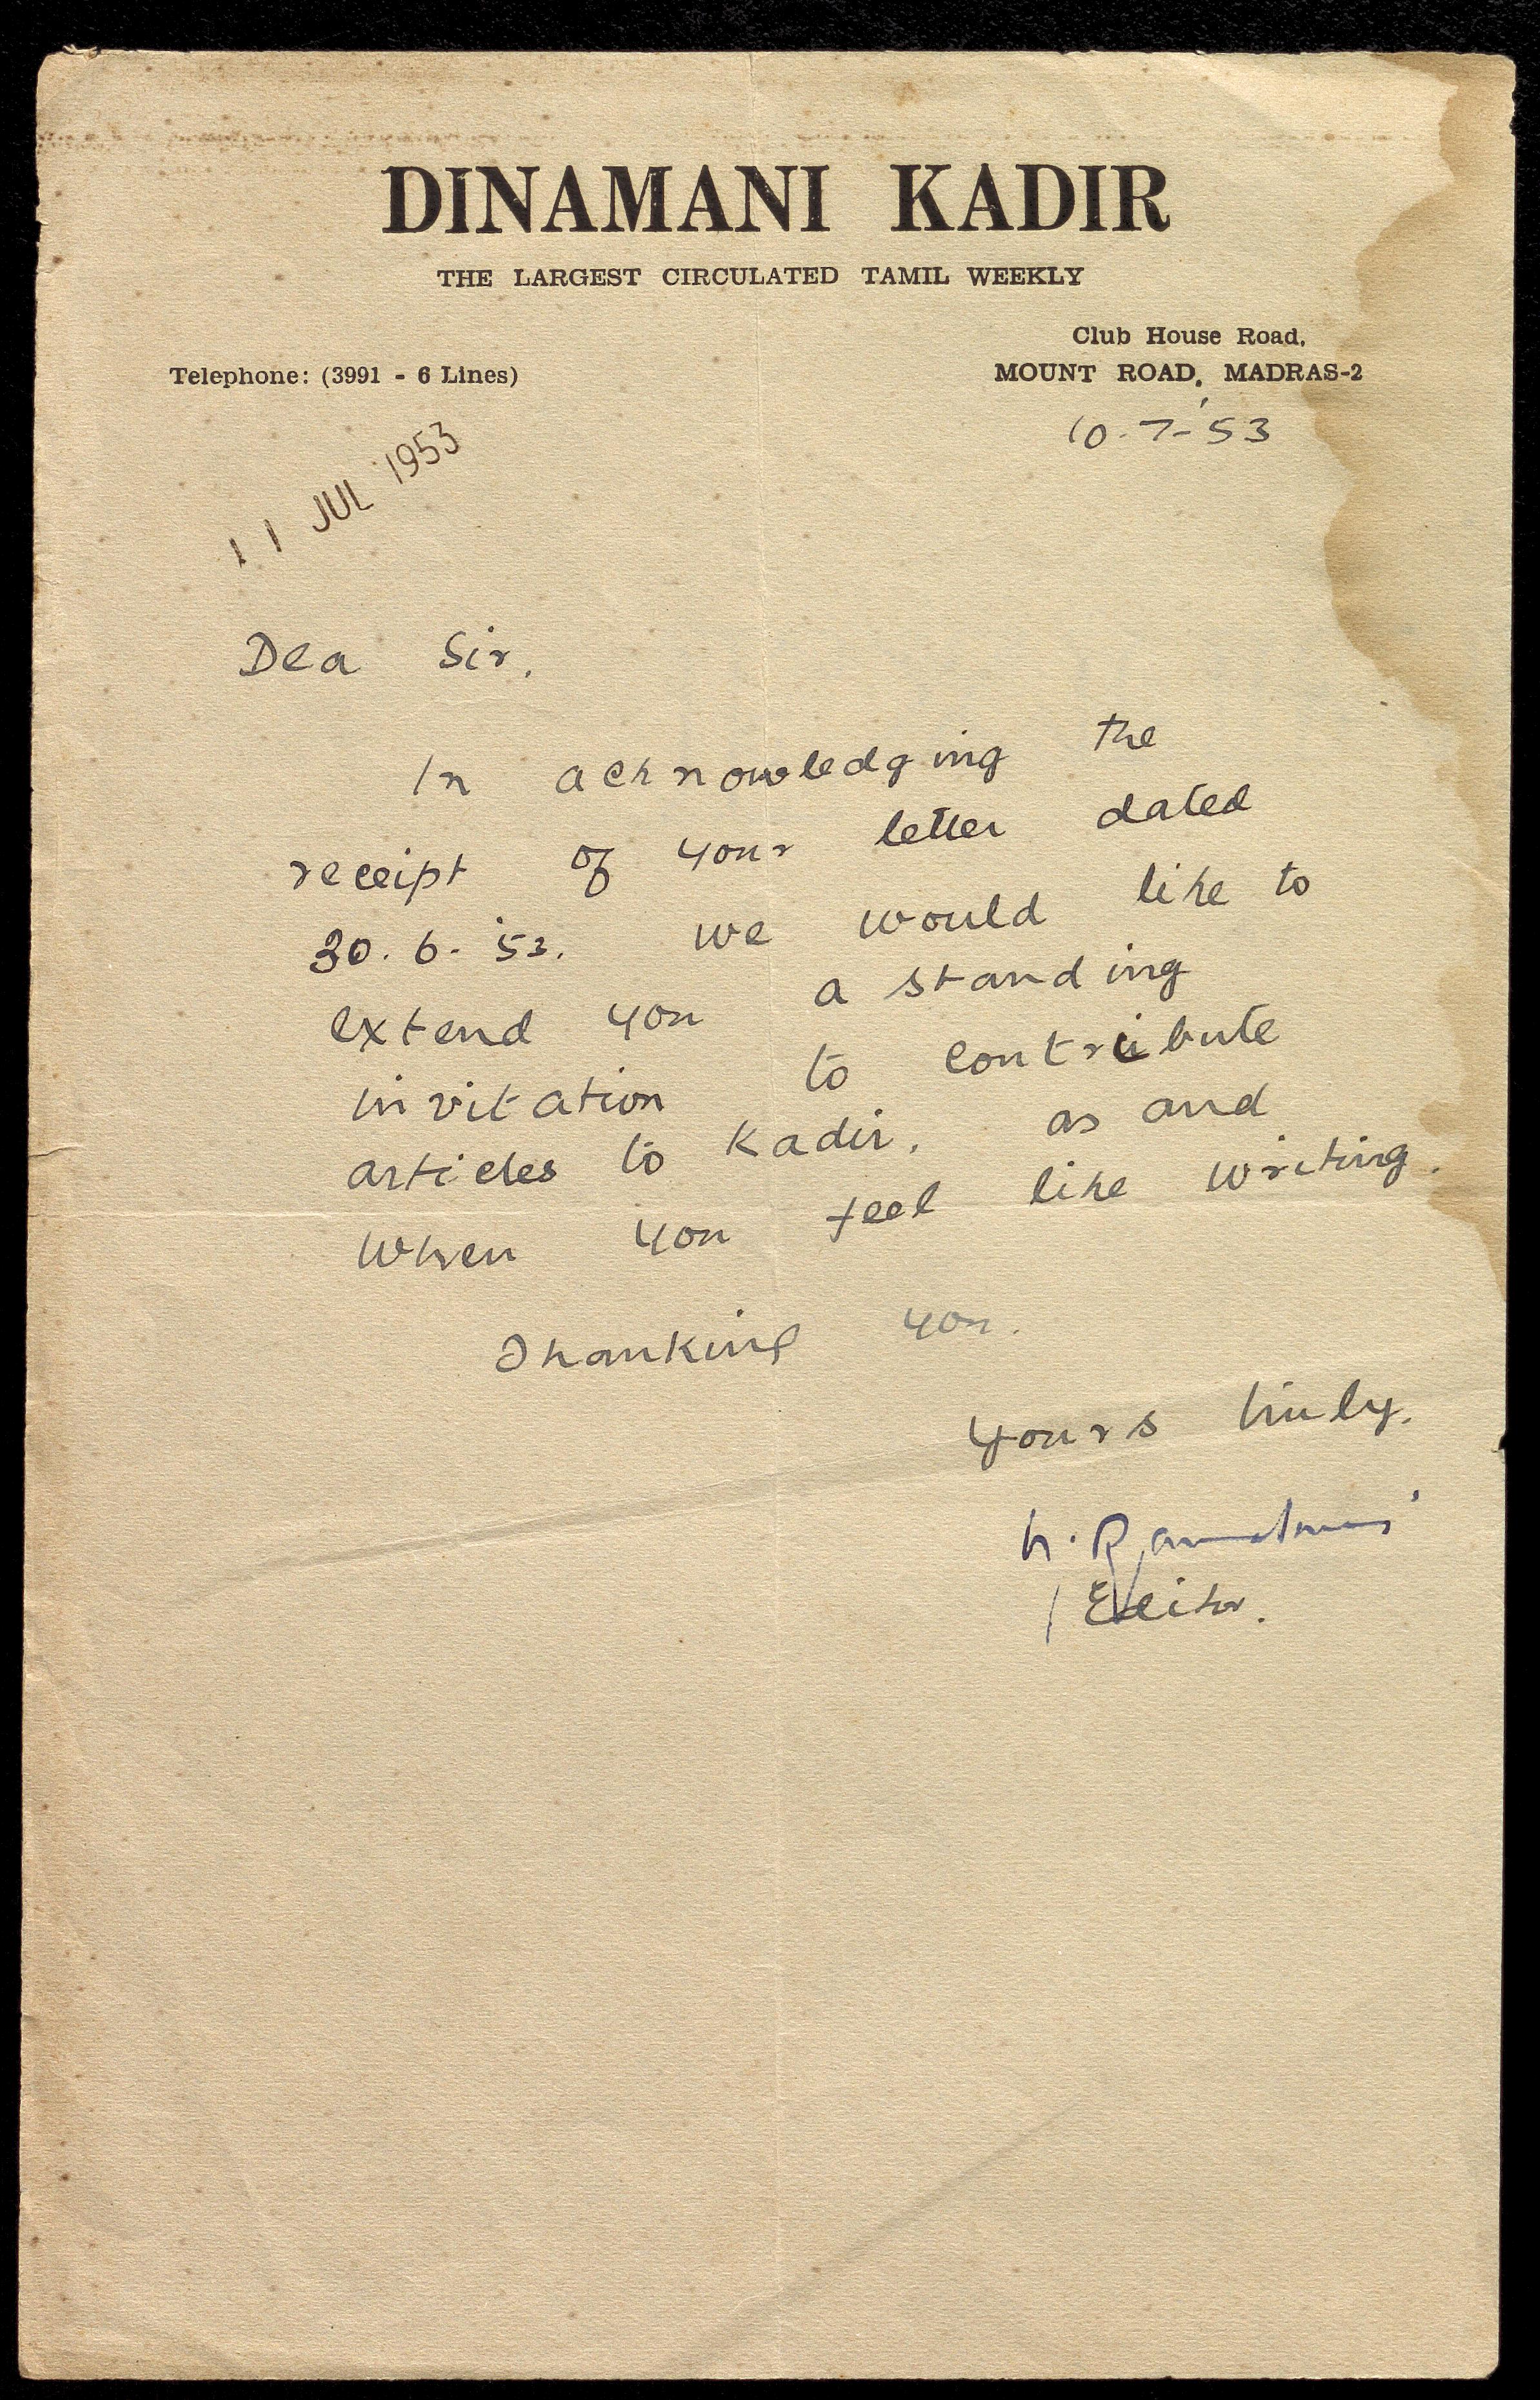 DINAMANI KADIR
THE LARGEST CIRCULATED TAMIL WEEKLY
Club House Road,
Telephone: (3991 - 6 Lines)
MOUNT ROAD, MADRAS-2
10-7-'53
11 JUL 1953
Dea Sir,
In acknowledging the
receipt of your letter dated
30.6.'53. we would like to
extend you a standing
invitation to contribute
articles to Kadir, as and
when you feel like writing.
Thanking you.
Yours truly,
Editor.